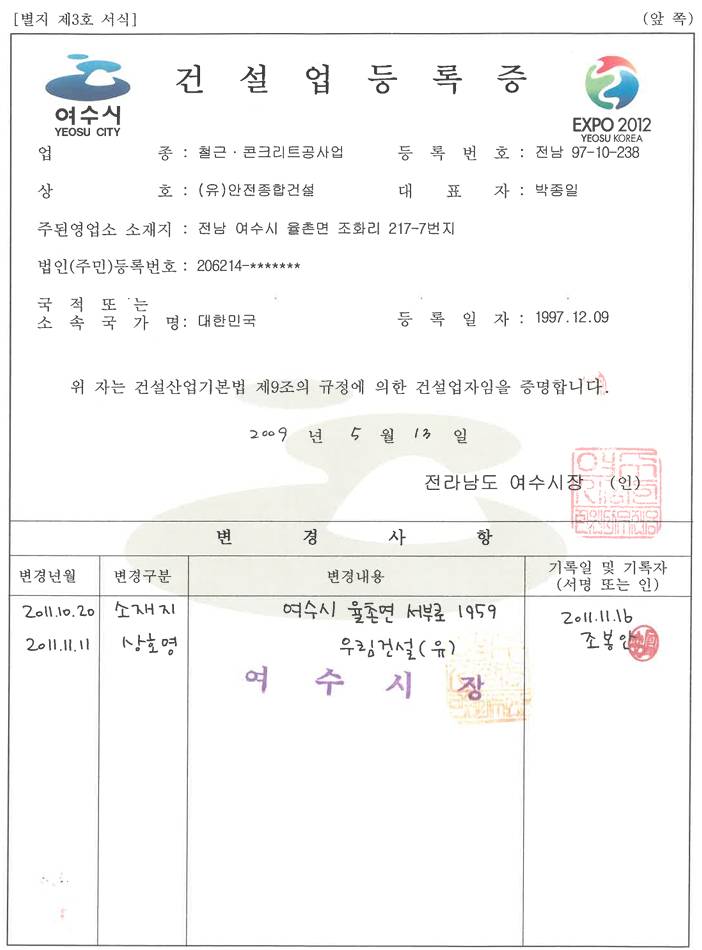 [별지 제3호 서식] (앞 쪽)
여수시
YEOSU CITY
건설업등록증
EXPO 2012
YEOSU KOREA
업 종 : 철근·콘크리트공사업 등 록 번 호 : 전남 97-10-238
상 호 : (유)안전종합건설 대 표 자 : 박종일
주된영업소 소재지 : 전남 여수시 율촌면 조화리 217-7번지
법인(주민)등록번호 : 206214-*******
국 적 또 는
소 속 국 가 명 : 대한민국 등 록 일 자 : 1997.12.09
위 자는 건설산업기본법 제9조의 규정에 의한 건설업자임을 증명합니다.
2009 년 5 월 13 일
전라남도 여수시장 (인)
변 경 사 항
변경년월 변경구분 변경내용 기록일 및 기록자
(서명 또는 인)
2011.10.20 소재지 여수시 율촌면 서부로 1959 2011.11.16
2011.11.11 상호명 우림건설(유) 조봉안
여 수 시 장